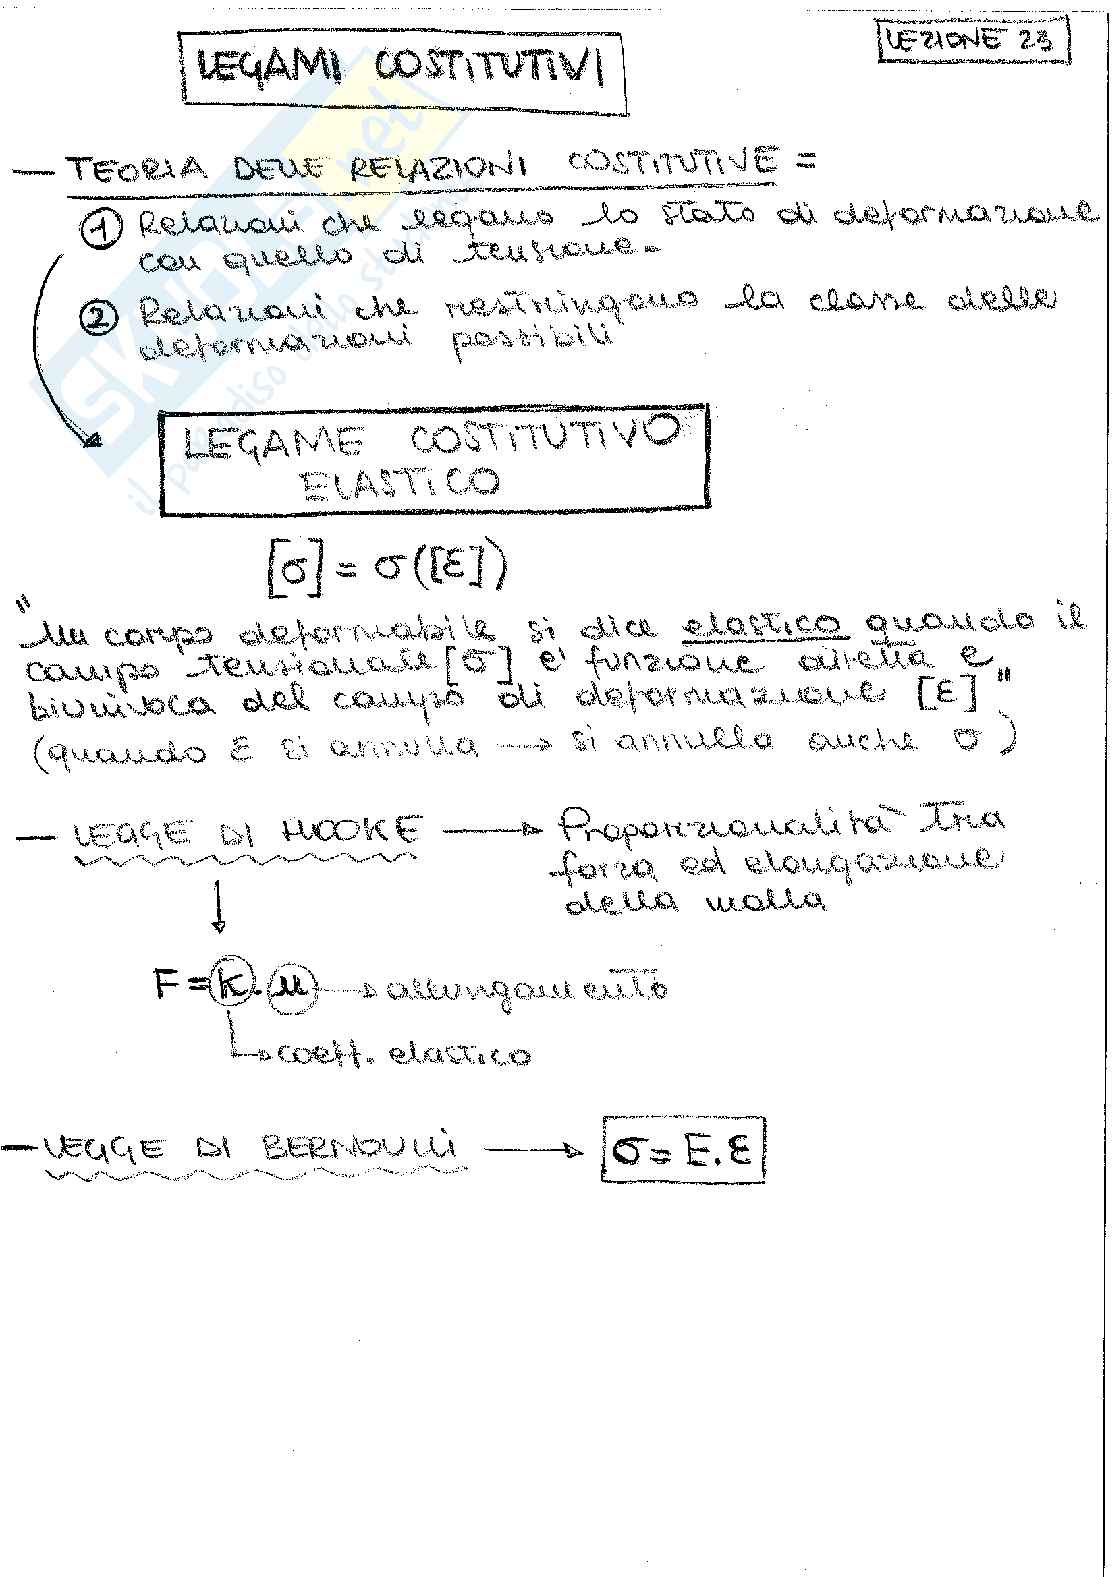 LEZIONE 23
LEGAMI COSTITUTIVI
— TEORIA DELLE RELAZIONI COSTITUTIVE =
① Relazioni che legano lo stato di deformazione
con quello di tensione.
② Relazioni che restringono la classe delle
deformazioni possibili
LEGAME COSTITUTIVO
ELASTICO
[σ] = σ([ε])
"Un corpo deformabile si dice elastico quando il
campo tensionale [σ] e' funzione diretta e
biunivoca del campo di deformazione [ε]"
(quando ε si annulla → si annulla anche σ)
— LEGGE DI HOOKE → Proporzionalità tra
forza ed elongazione
della molla
F = k . u → allungamento
→ coeff. elastico
— LEGGE DI BERNOULLI → σ = E . ε
SKUOLA.net
il paradiso dello